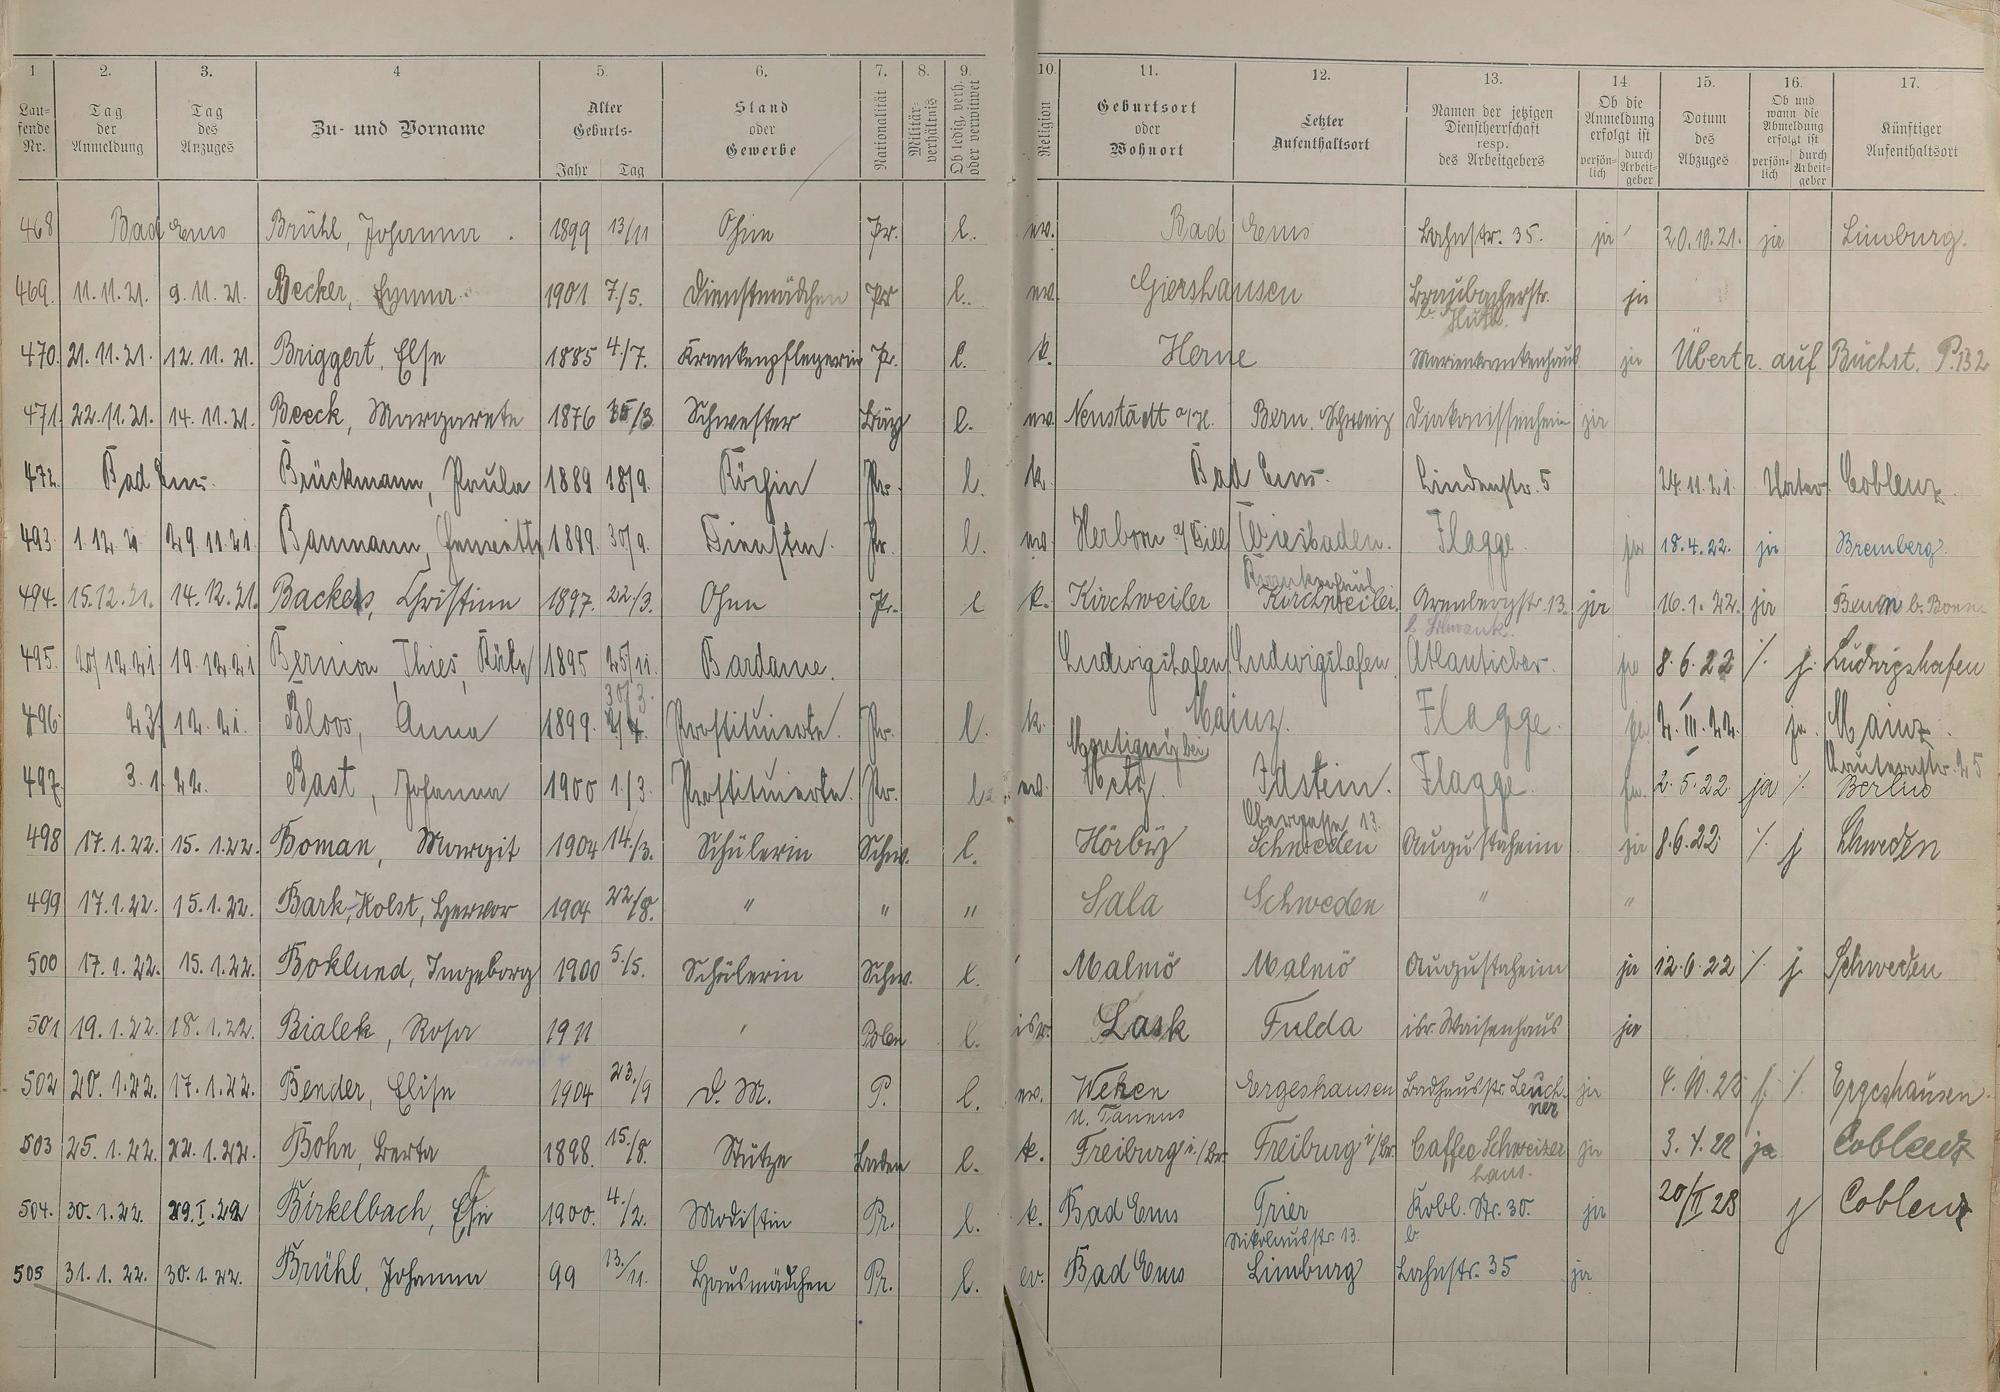 1 2. 3. 4 5. 6. 7. 8. 9. 10. 11. 12. 13. 14 15. 16. 17.
Lau=fende Nr. Tag der Anmeldung Tag des Anzuges Zu- und Vorname Alter Geburts- Jahr Tag Stand oder Gewerbe Nationalität Militär-verhältnis Ob ledig, verh. oder verwitwet Religion Geburtsort oder Wohnort Letzter Aufenthaltsort Namen der jetzigen Dienstherrschaft resp. des Arbeitgebers Ob die Anmeldung erfolgt ist persön=lich durch Arbeit=geber Datum des Abzuges Ob und wann die Abmeldung erfolgt ist persön=lich durch Arbeit=geber Künftiger Aufenthaltsort
468 Bad Ems Brühl, Johanna. 1899 13/11 Ohne Pr. l. ev. Bad Ems Lahnstr. 35. ja 20.10.21. ja Limburg.
469. 11.11.21. 9.11.21. Becker, Emma 1901 7./5. Dienstmädchen Pr l. ev. Giershausen Braubacherstr. ja
b. Huth.
470. 21.11.21. 12.11.21. Briggert, Else 1885 4./7. Krankenpflegerin Pr. l. k. Herne Marienkrankenhaus ja Übertr. auf Buchst. P. 132
471. 22.11.21. 14.11.21. Beeck, Margarete 1876 /3. Schwester Bay l. ev. Neustadt a/H. Bern, Schweiz Diakonissenheim ja
472. Bad Ems. Brückmann, Paula 1889 18/9. Köchin Pr. l. k. Bad Ems. Lindenstr. 5 24.11.21. Vater Coblenz.
493. 1.12.21. 29.11.21. Baumann, Henriette 1899. 30/9. Dienstm. Pr. l. ev. Herborn a/Dill Wiesbaden. Flagge. ja 18.4.22. ja Bremberg.
Krankenhaus
494. 15.12.21. 14.12.21. Backes, Christine 1897. 22./3. Ohne Pr. l k. Kirchweiler Kirchweiler. Arenbergstr. 13. ja 16.1.22. ja b. Bonn
b. Schwank.
495. 20/12.21 19.12.21 Bernion, Thies, Käte 1895 25/11. Bardame. Ludwigshafen Ludwigshafen. Atlanticbar. ja 8.6.22 /. j. Ludwigshafen
30/3.
496. 23/12.21. Bloos, Anna 1899. Prostituierte. Pr. l. k. Mainz. Flagge. ja 2.III.22. ja. Mainz.
Montigny bei
497. 3.1.22. Bast, Johanna 1900 1./3. Prostituierte. Pr. l. ev. Metz. Idstein. Flagge. ja. 2.5.22. ja /. Berlin
Obergasse 13.
498 17.1.22. 15.1.22. Boman, Margit 1904 14./3. Schülerin Schw. l. Hörby Schweden Augustaheim ja 8.6.22. /. j Schweden
499 17.1.22. 15.1.22. Bark-Holst, Hervor 1904 22/8. " " " Sala Schweden " "
500 17.1.22. 15.1.22. Boklund, Ingeborg 1900 5./5. Schülerin Schw. l. Malmö Malmö Augustaheim ja 12.6.22 /. j. Schweden
501 19.1.22. 18.1.22. Bialek, Rosa 1911 Polen l. isr. Lask Fulda isr. Waisenhaus ja
502 20.1.22. 17.1.22. Bender, Elise 1904 23./9 D. M. P. l. ev. Wehen Ergeshausen Badhausstr. Leuch-ner ja 4.10.22 j. /. Ergeshausen.
u. Taunus
503 25.1.22. 22.1.22. Bohn, Berta 1898. 15./8. Stütze Baden l. k. Freiburg i/Br. Freiburg i/Br. Caffee Schweizer ja 3.4.22 ja Coblenz
haus.
504. 30.1.22. 29.I.22 Birkelbach, Else 1900. 4./2. Modistin Pr. l. k. Bad Ems Trier Kobl. Str. 30. ja 20/II 23 j Coblenz
Nikolausstr. 13. b
505 31.1.22. 30.1.22. Brühl, Johanna 99 13./11. Hausmädchen Pr. l. ev. Bad Ems Limburg Lahnstr. 35 ja